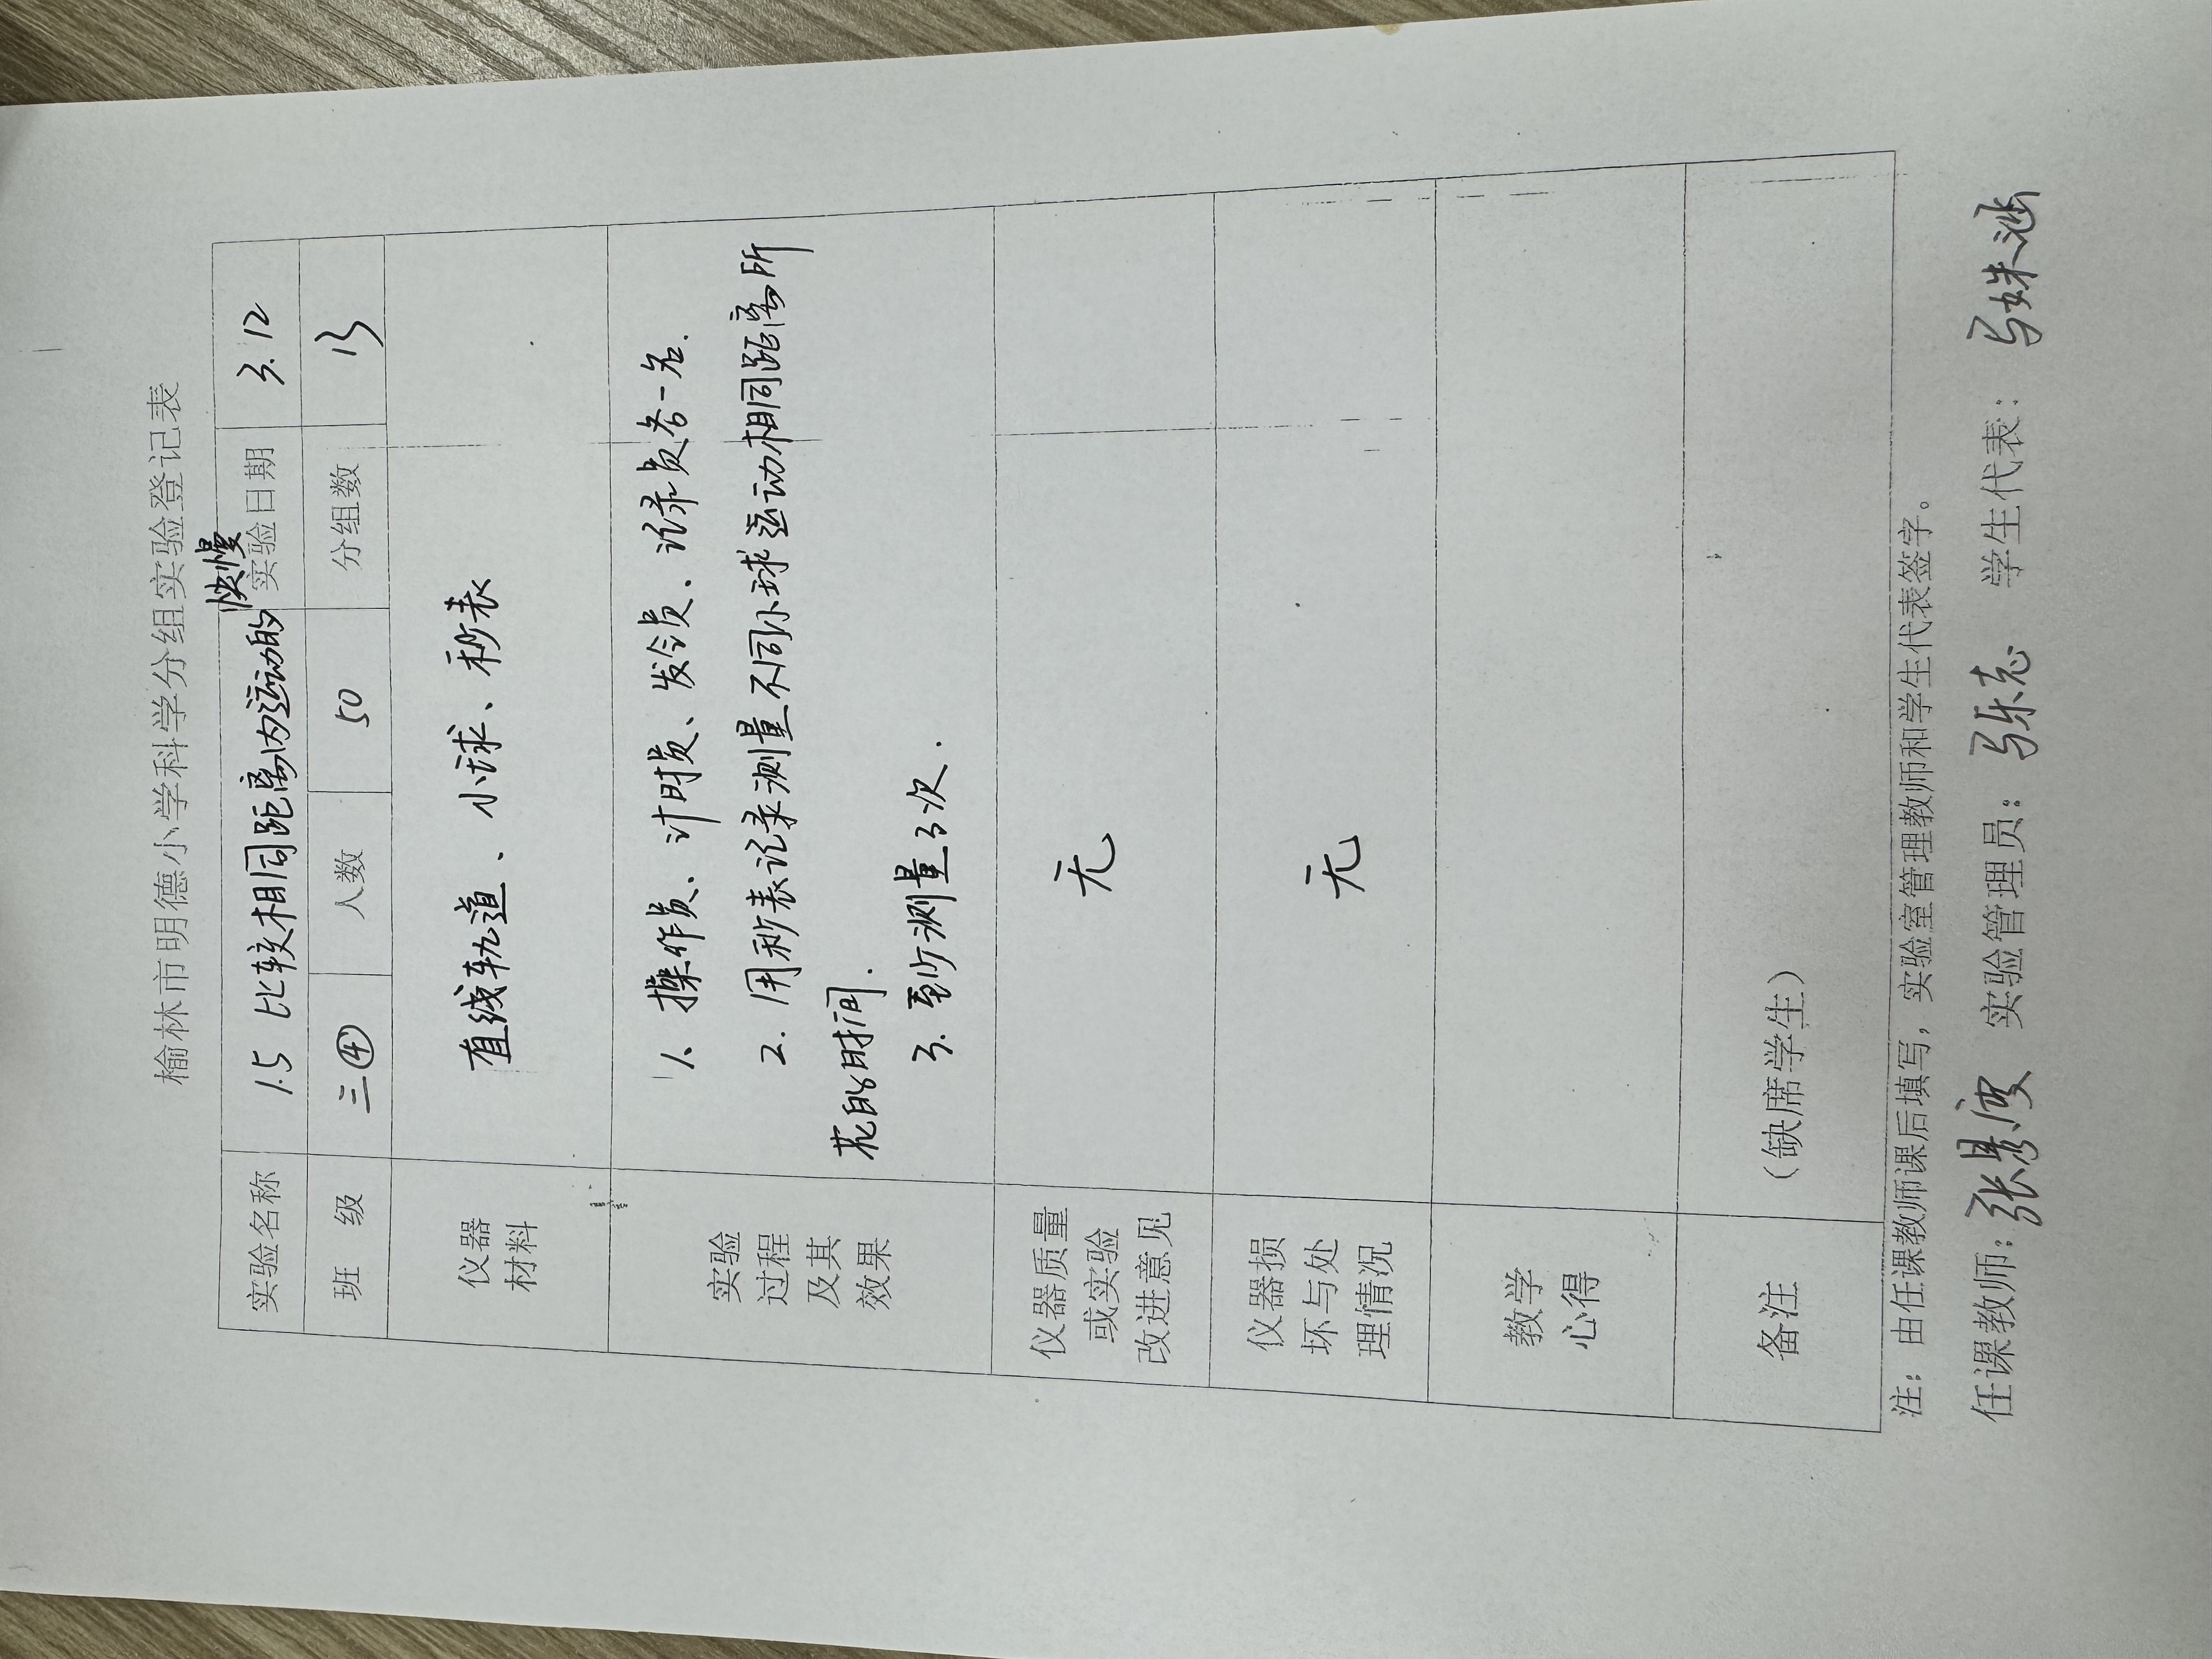 榆林市明德小学科学分组实验登记表
实验名称 1.5 比较相同距离内运动的快慢 实验日期 3.12
班 级 三④ 人数 50 分组数 13
仪器
材料
直线轨道、小球、秒表
实验
过程
及其
效果
1、操作员、计时员、发令员、记录员各一名.
2. 用秒表记录测量不同小球运动相同距离所
花的时间.
3. 至少测量3次.
仪器质量
或实验
改进意见
无
仪器损
坏与处
理情况
无
教学
心得
备注
（缺席学生）
注：由任课教师课后填写，实验室管理教师和学生代表签字。
任课教师：张 实验管理员：马乐志 学生代表：马姝涵